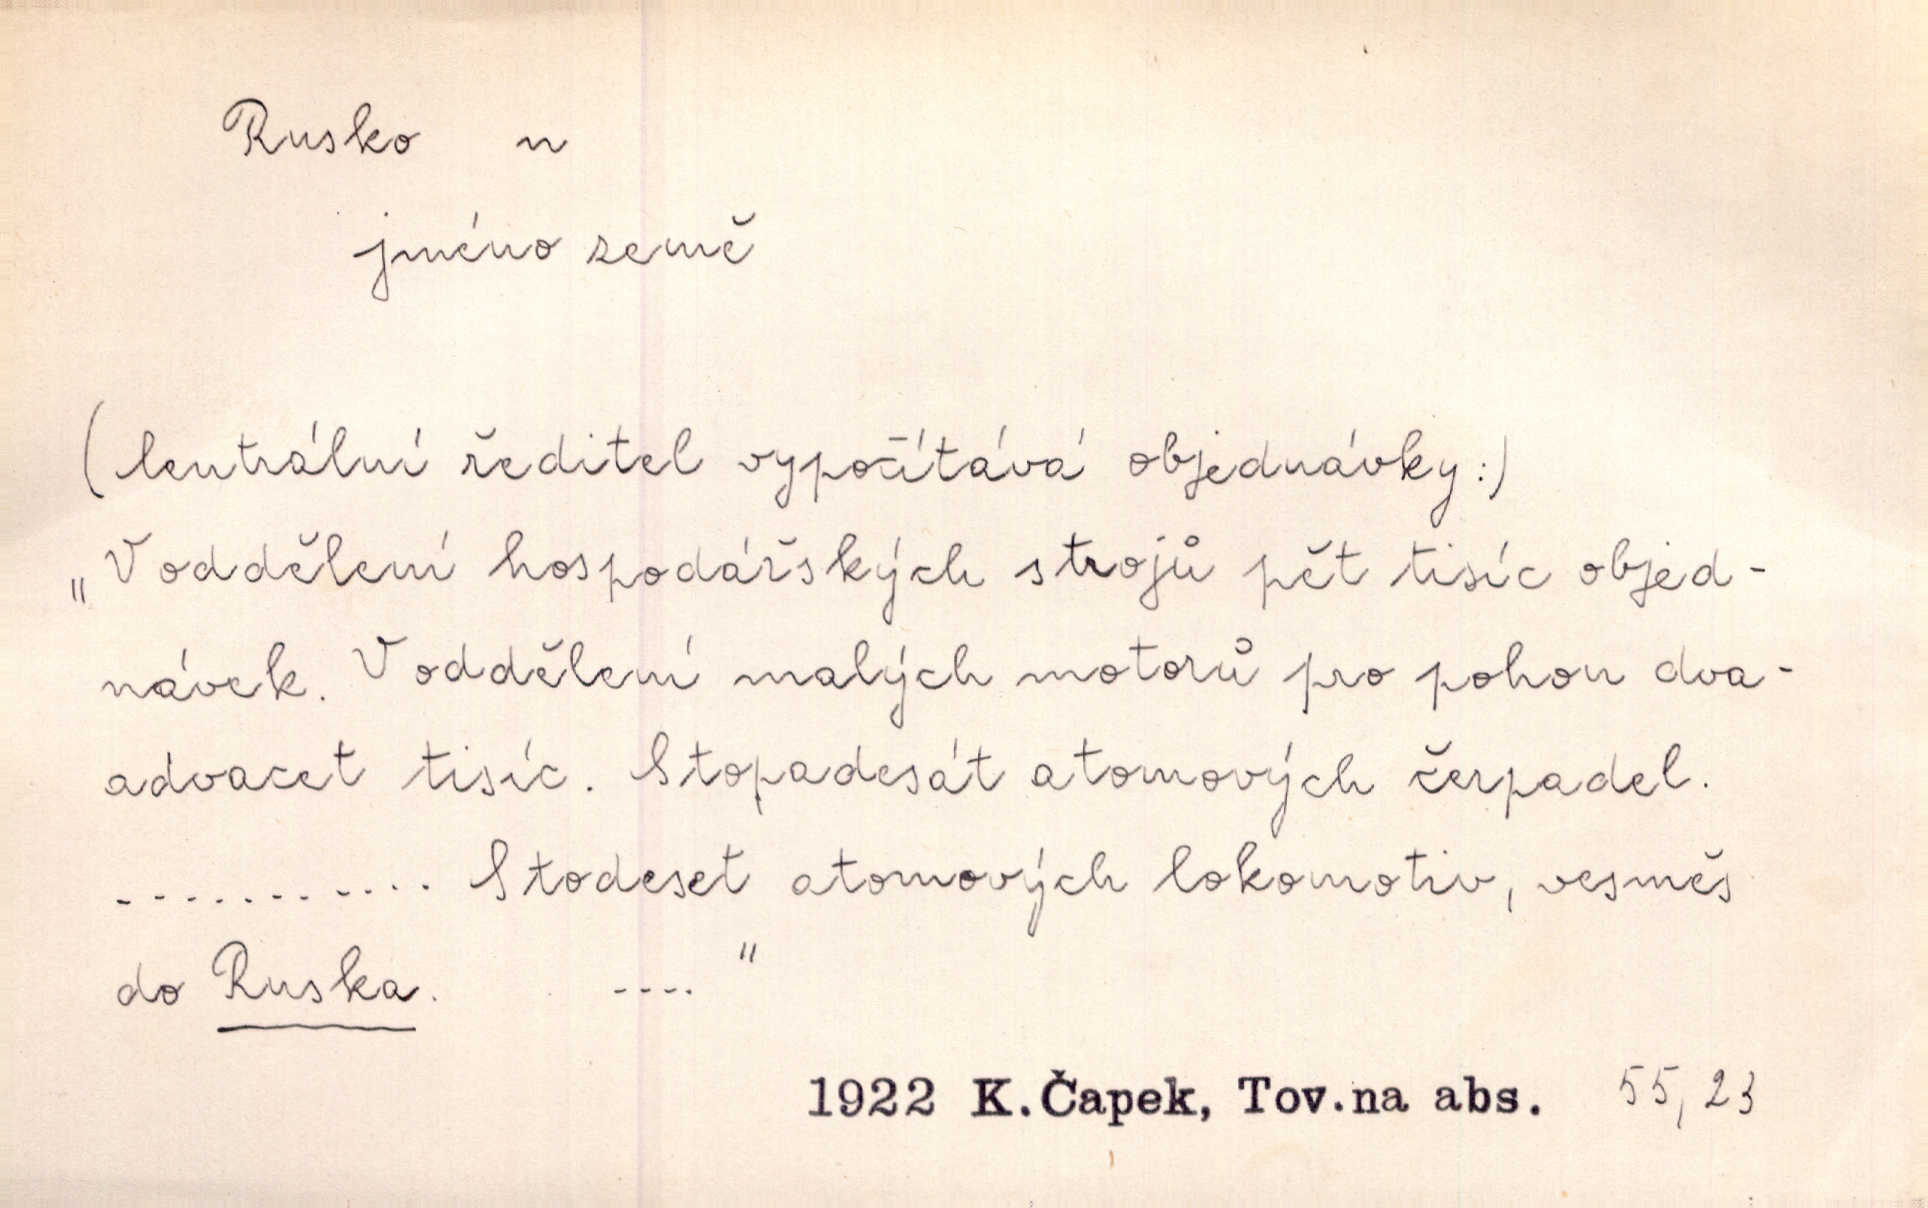 Rusko n
jméno země
(Centrální ředitel vypočítává objednávky:)
„V oddělení hospodářských strojů pět tisíc objed-
návek. V oddělení malých motorů pro pohon dva-
advacet tisíc. Stopadesát atomových čerpadel.
............ Stodeset atomových lokomotiv, vesměs
do Ruska. ...."
1922 K.Čapek, Tov.na abs. 55,23